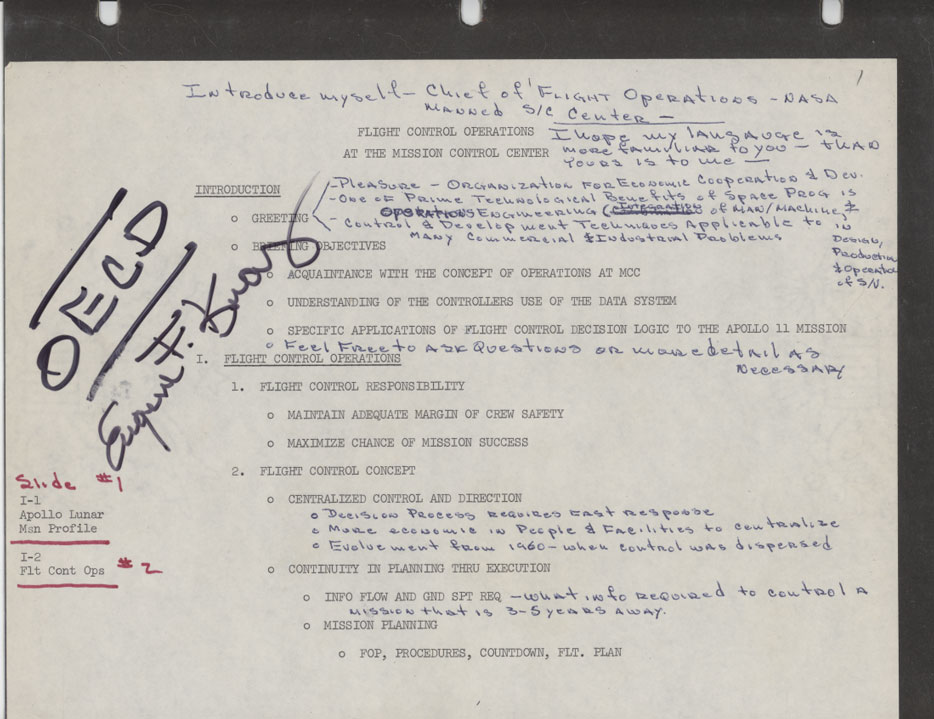 1
Introduce myself - Chief of Flight Operations - NASA
Manned S/C Center -
FLIGHT CONTROL OPERATIONS
AT THE MISSION CONTROL CENTER
I hope my langauge is
more familiar to you - than
yours is to me -
INTRODUCTION
- Pleasure - Organization for Economic Cooperation & Dev.
- One of Prime Technological Benefits of Space Prog is
OPERATIONS ENGINEERING (Integration of MAN/MACHINE) &
- Control & Development Techniques Applicable to
Many Commercial & Industrial Problems
in
Design,
Production
& Operation
of S/V.
o GREETING
o BRIEFING OBJECTIVES
o ACQUAINTANCE WITH THE CONCEPT OF OPERATIONS AT MCC
o UNDERSTANDING OF THE CONTROLLERS USE OF THE DATA SYSTEM
o SPECIFIC APPLICATIONS OF FLIGHT CONTROL DECISION LOGIC TO THE APOLLO 11 MISSION
o Feel Free to ask Questions or more detail as
Necessary
OECD
Eugene F. Kranz
I. FLIGHT CONTROL OPERATIONS
1. FLIGHT CONTROL RESPONSIBILITY
o MAINTAIN ADEQUATE MARGIN OF CREW SAFETY
o MAXIMIZE CHANCE OF MISSION SUCCESS
2. FLIGHT CONTROL CONCEPT
Slide #1
I-1
Apollo Lunar
Msn Profile
I-2
Flt Cont Ops #2
o CENTRALIZED CONTROL AND DIRECTION
o Decision Process requires fast response
o More economic in People & Facilities to centralize
o Evolvement from 1960 - when control was dispersed
o CONTINUITY IN PLANNING THRU EXECUTION
o INFO FLOW AND GND SPT REQ - what info required to control a
mission that is 3-5 years away.
o MISSION PLANNING
o FOP, PROCEDURES, COUNTDOWN, FLT. PLAN